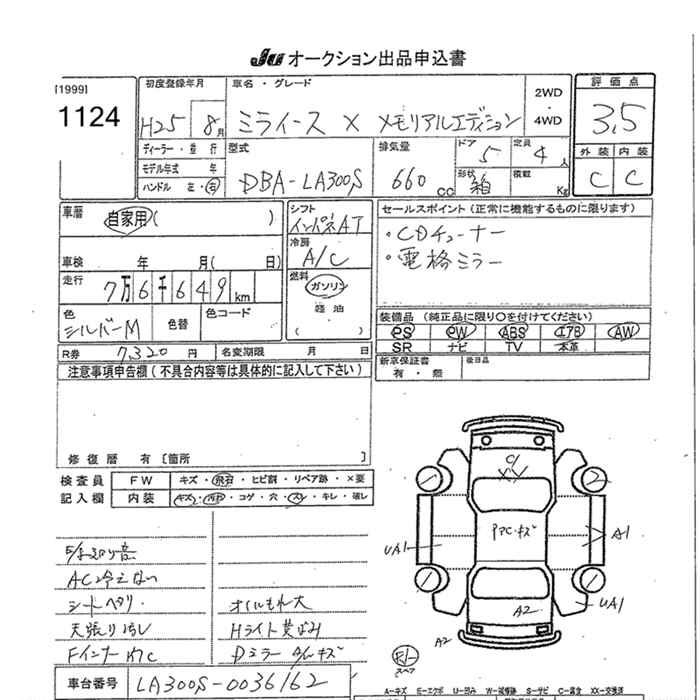 JU オークション出品申込書
[1999]
1124
初度登録年月
H25 8月
車名・グレード
ミライース X メモリアルエディション
2WD
・
4WD
評価点
3.5
外装 内装
C C
ディーラー・並行
モデル年式 年
ハンドル 左・右
型式
DBA-LA300S
排気量
660 cc
ドア
5
定員
4 人
形状
箱
積載
Kg
車歴
自家用( )
車検 年 月( 日)
走行
7万6千649 km
色
シルバーM
色替
色コード
シフト
インパネAT
冷房
A/C
燃料
ガソリン
軽油
( )
セールスポイント(正常に機能するものに限ります)
・CDチューナー
・電格ミラー
装備品(純正品に限り〇を付けてください)
PS PW ABS エアB AW
SR ナビ TV 本革
新車保証書
有・無
後日品
R券 7,320 円
名変期限 月 日
注意事項申告欄(不具合内容等は具体的に記入して下さい)
修復歴 有[箇所 ]
検査員
記入欄
FW キズ・飛石・ヒビ割・リペア跡・×要
内装 キズ・汚れ・コゲ・穴・スレ・キレ・破レ
AC冷えない
シートヘタリ
オイルもれ大
天張り汚し
Hライト黄ばみ
Fインナー欠
Dミラーカバーキズ
車台番号 LA300S-0036162
UA1
A1
UA1
A2
A2
スペア
A-キズ E-エクボ U-凹み W-波補修 S-サビ C-腐食 XX-交換済